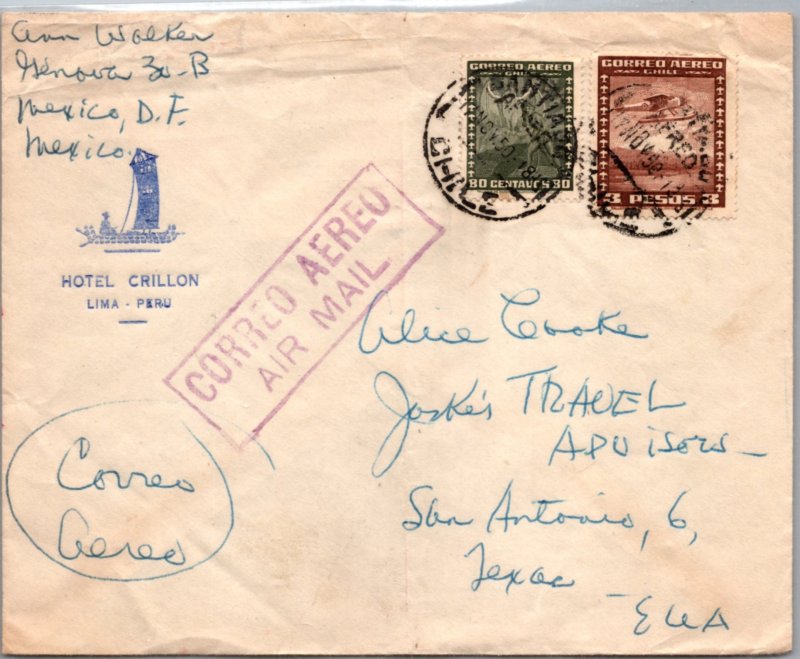 Ann Walker
Génova 30-B
Mexico, D.F.
Mexico.
HOTEL CRILLON
LIMA - PERU
CORREO AEREO
CHILE
80 CENTAVOS 80
CORREO AEREO
CHILE
3 PESOS 3
SANTIAGO
CHILE
CORREO AEREO
AIR MAIL
Alice Cooke
Joske's TRAVEL
ADVISORS
San Antonio, 6,
Texas
EUA
Correo
Aereo